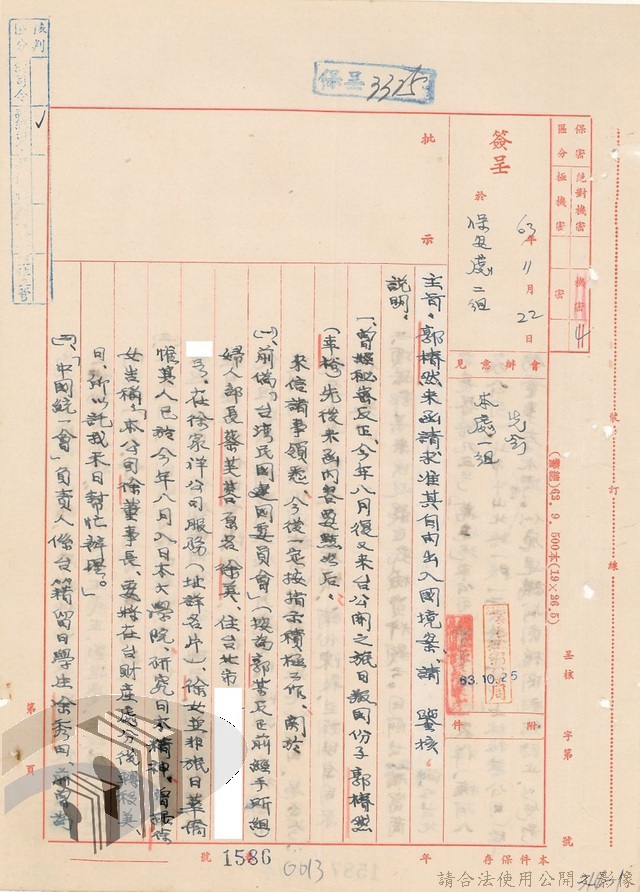 保呈3325
核判區分
保密區分
絕對機密
極機密
機密
密
4
簽呈
63年11月22日
於
保安處二組
會辦意見
先會
本處一組
附件
63.10.25
批示
主旨:郭椿然來函請求准其自由出入國境案,請 鑒核。
說明:
一、曾經秘密反正、今年八月復又來台公開之旅日叛國份子郭椿然
先後來函內容要點如后。
來信諸事領悉、今後一定按指示積極工作、關於
(一)前偽「台灣民國建國委員會」(按為郭某反正前經手所組
婦人部長蔡某某原名徐某、住台北市
號、在徐家洋公司服務(址詳名片)、徐女並非旅日華僑
惟其人已於今年八月入日本大學院、研究日本精神、曾據徐
女告稱、「本公司徐董事長、要將在台財產處分後轉移美、
日、所以託我來日幫忙辦理。」
(二)、「中國統一會」負責人係台籍留日學生徐秀田、前曾為
第 頁
(警總)63.9.500本(19×26.5)
號訂線
呈核 字第 號
年
號
1586
0013
本件保存
請合法使用公開之影像